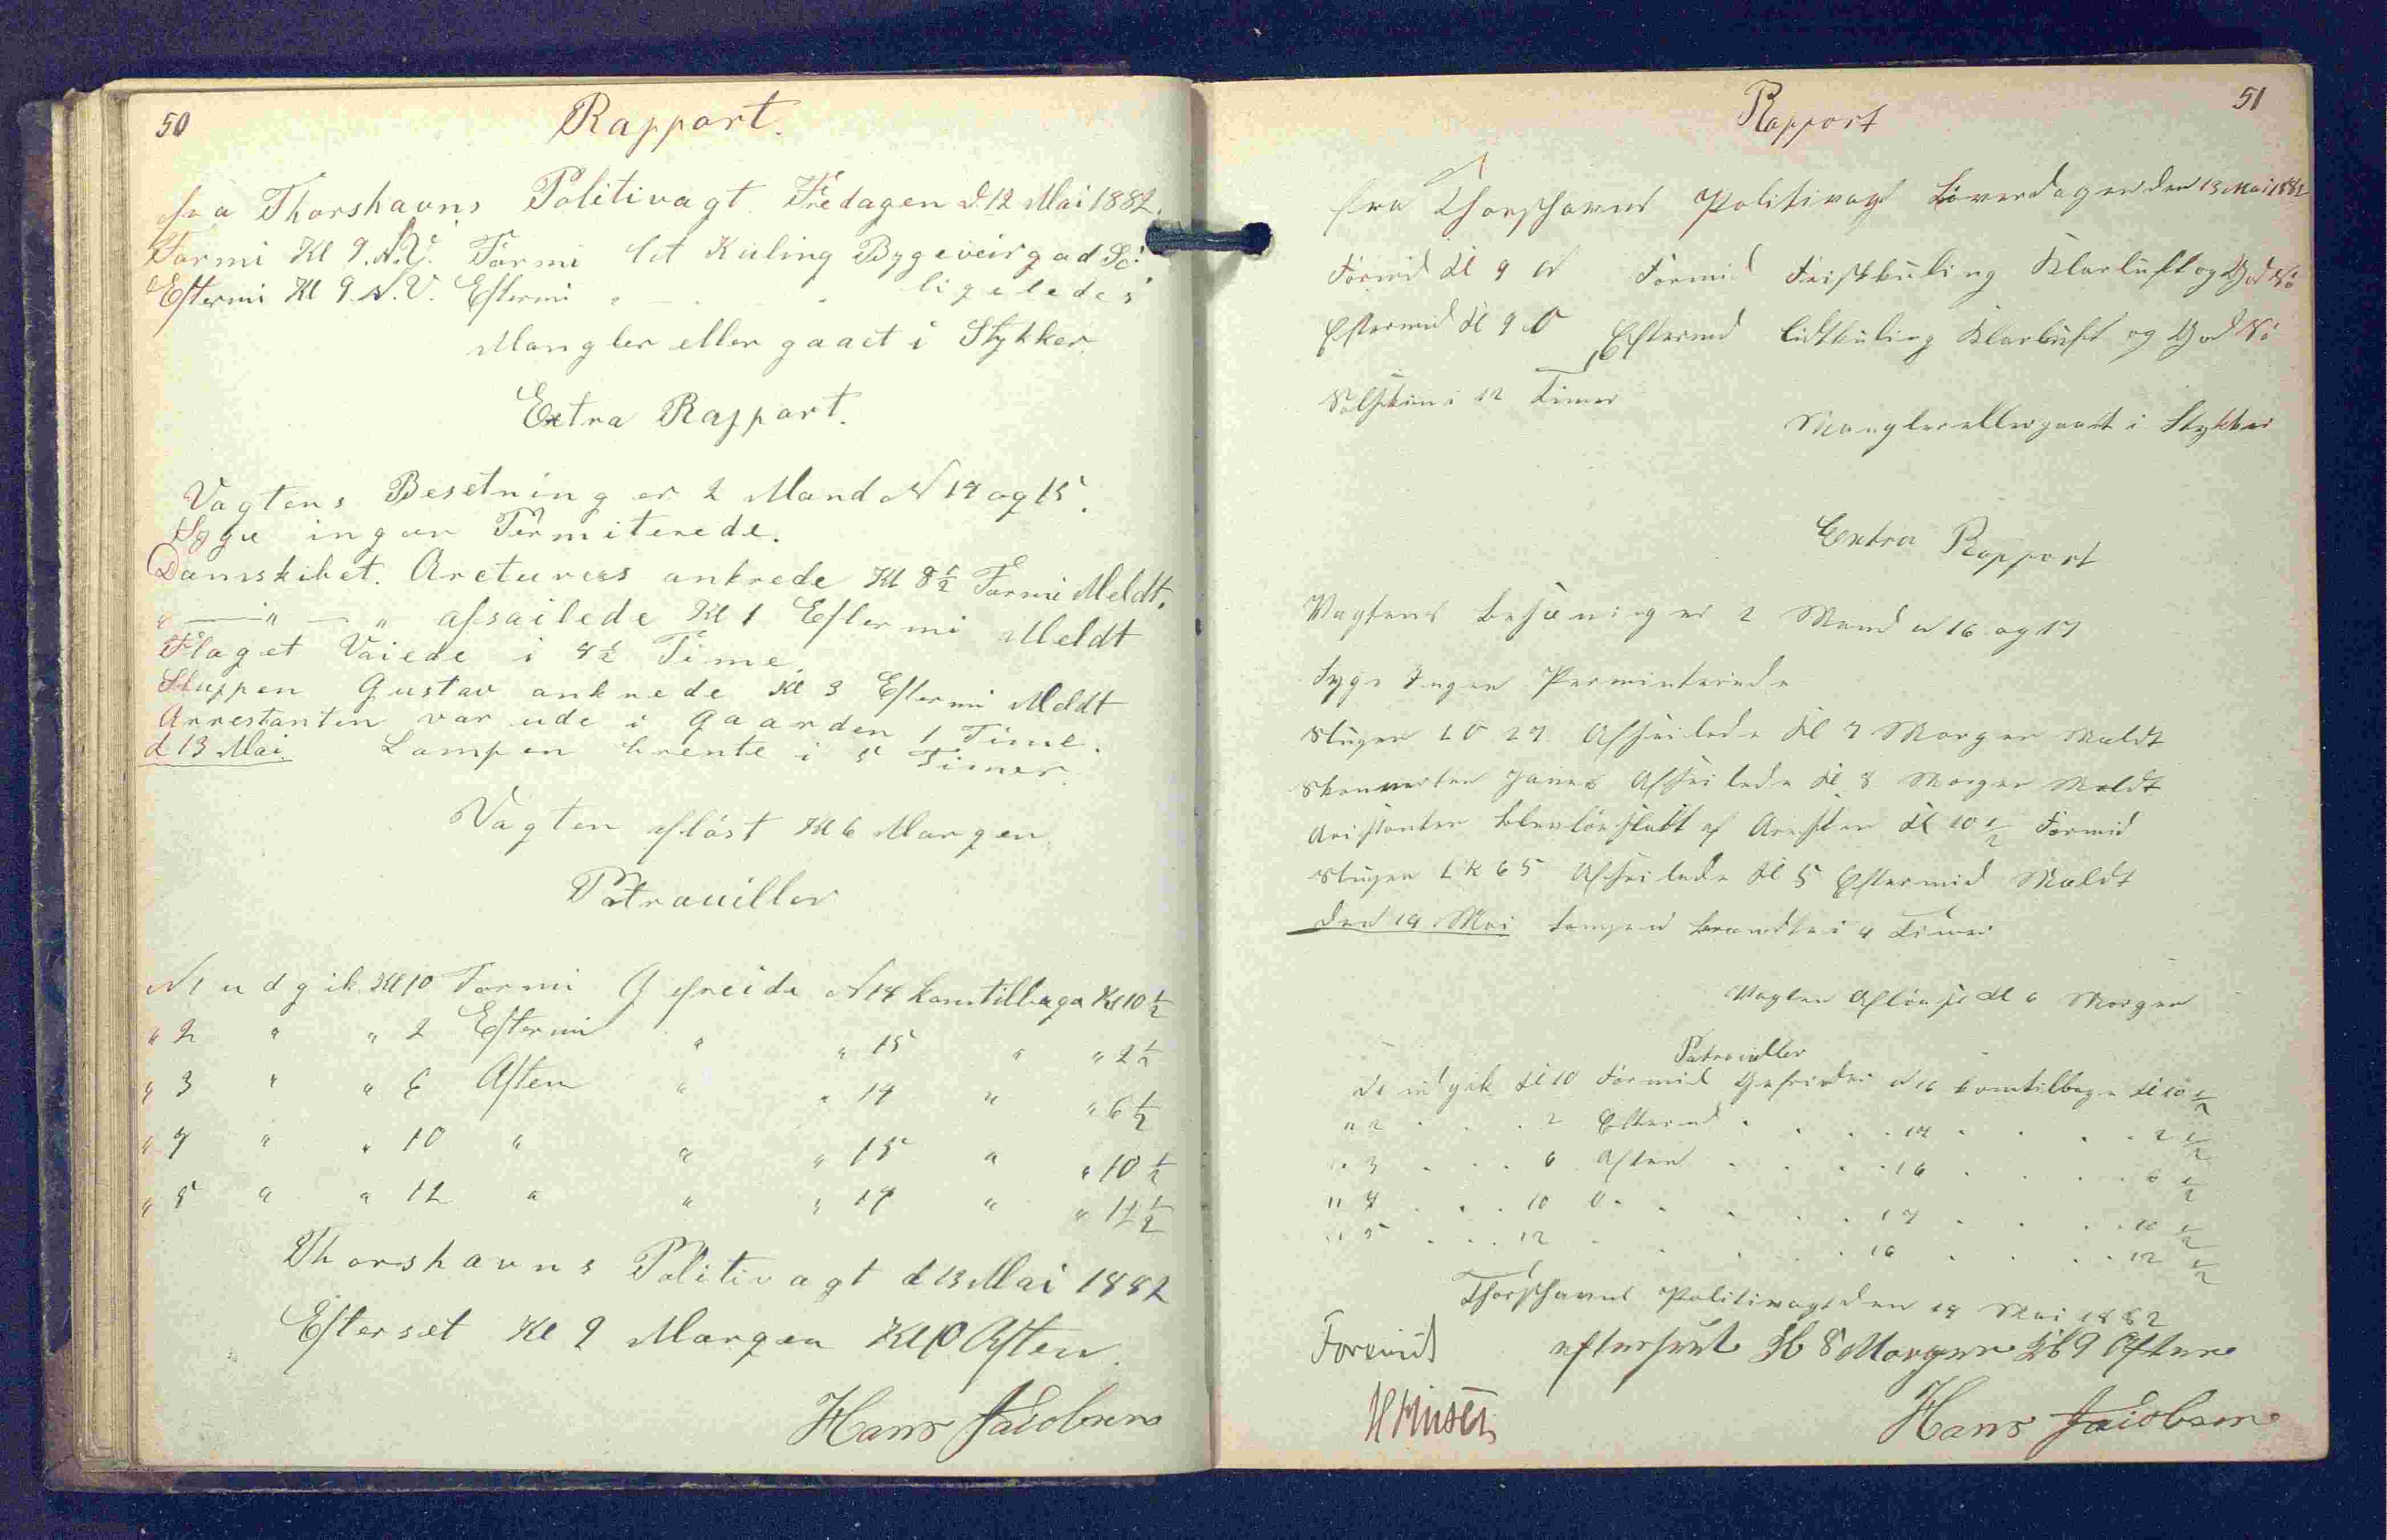 50
Rapport.
fra Thorshavns Politivagt Fredagen d. 12 Mai 1882.
Formi Kl 9. N.V. Formi let Kuling Bygeveir god Sö.
Eftermi Kl 9. N.V. Eftermi " " ligeledes
Mangler eller gaaet i Stykker
Extra Rapport.
Vagtens Besetning er 2 Mand N 14 og 15.
Syge ingen Permiterede.
Damskibet. Arcturus ankrede Kl 8½ Formi Meldt.
" — " — " afsailede Kl 1 Eftermi Meldt
Flaget Vaiede i 4½ Time.
Sluppen Gustav ankrede Kl 3 Eftermi Meldt
Arrestanten var ude i Gaarden 1 Time.
d 13 Mai. Lampen brente i 5 Timer.
Vagten aflöst Kl 6 Morgen
Patrouiller
N 1 udgik Kl 10 Formi Gefreide N 14 kom tilbage Kl 10½
" 2 " " 2 Eftermi " " 15 " " 2½
" 3 " " 6 Aften " " 14 " " 6½
" 4 " " 10 " " " 15 " " 10½
" 5 " " 12 " " " 14 " " 12½
Thorshavns Politivagt d 13 Mai 1882
Efterset Kl 9 Morgen Kl 10 Aften.
Hans Jacobsen
51
Rapport
fra Thorshavns Politivagt Löverdagen den 13 Mai 1882
Formid Kl 9 N Formid Friskkuling Klarluft og God Sö
Eftermid Kl 9 O Eftermd Lidtkuling Klarluft og God Sö
Solskin i 12 Timer
Mangler eller gaaet i Stykker
Extra Rapport
Vagtens Besæning er 2 Mand N 16 og 17
Syge Ingen Perminterede
Slupen L O 27 Afseilede Kl 7 Morgen Mældt
Skonnerten Janes Afseilede Kl 8 Morgen Meldt
Aristanten blev lösslatt af Aresten Kl 10½ Formid
Slupen L K 65 Afseilede Kl 5 Eftermid Mældt
den 14 Mai Lampen brandte i 4 Timer
Vagten Aflöest Kl 6 Morgen
Patrouiller
N 1 udgik Kl 10 Formid Gefreider N 16 kom tilbage Kl 10½
" 2 . . . 2 Eftermd . . . 17 . . . 2½
" 3 . . . 6 Aften . . . 16 . . . 6½
" 4 . . . 10 D. . . . 17 . . . 10½
" 5 . . . 12 . . . 16 . . . 12½
Thorshavns Politivagt den 14 Mai 1882
Forevist efterseet Kl 8 Morgen Kl 9 Aften
H Finsen
Hans Jacobsen